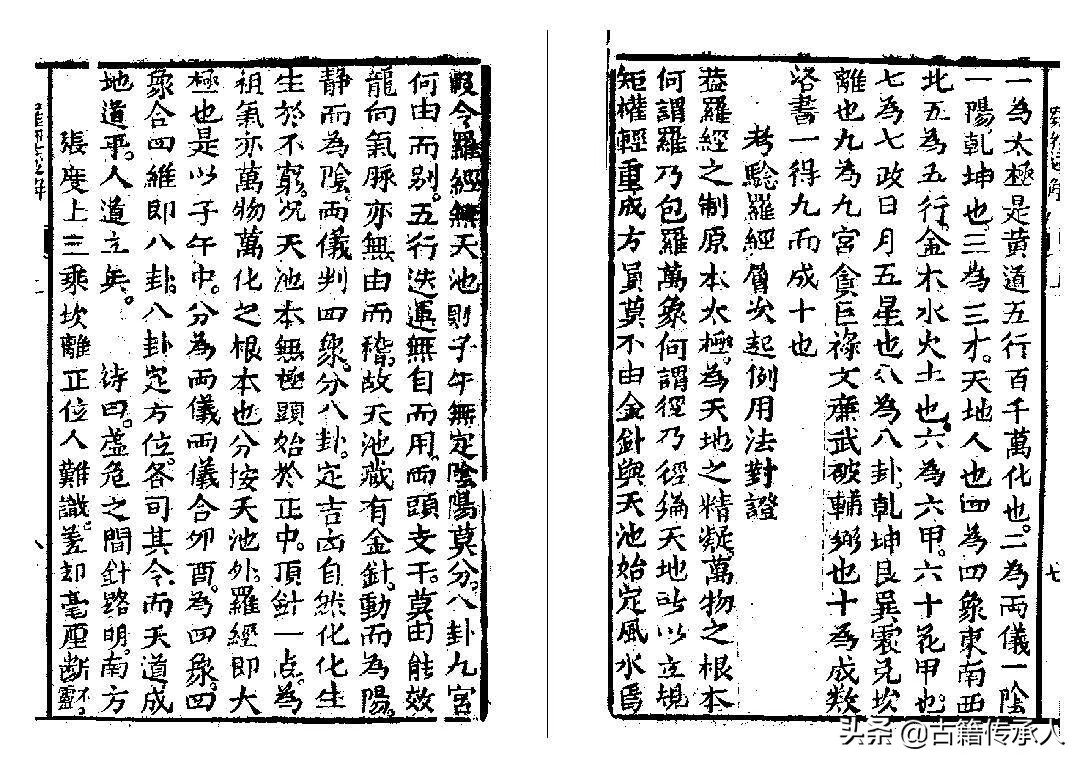 一為太極是黄道五行百千萬化也。二為兩儀一陰
一陽乾坤也。三為三才。天地人也四為四象東南西
北五為五行。金木水火土也。六為六甲。六十花甲也
七為七政日月五星也八為八卦。乾坤艮巽震兌坎
離也九為九宫貪巨祿文廉武破輔弼也十為成数
洛書一得九而成十也
考驗羅經層次起例用法對證
葢羅經之制原本太極。為天地之精凝。萬物之根本
何謂羅乃包羅萬象何謂徑乃徑綸天地所以立規
矩權輕重成方員莫不由金針與天池始定風水爲
叚令羅經無天池則子午無定陰陽莫分。八卦九宫
何由而别。五行迭運無自而用。兩頭支干。莫由能效
龍向氣脉亦無由而稽。故天池藏有金針。動而為陽。
静而為陰。兩儀判四象。分八卦。定吉凶自然化化生
生於不窮。况天池本無極頭始於正中。頂針一点。為
祖氣亦萬物萬化之根本也分按天池外。羅經即大
極也是以子午中。分為兩儀兩儀合卯酉。為四象。四
象合四維即八卦。八卦定方位。各司其令而天道成
地道平。人道立矣。 詩曰。虚危之間針路明。南方
張度上三乘坎離正位人難識。差却毫厘断不靈
八
七
头条 @古籍传承人